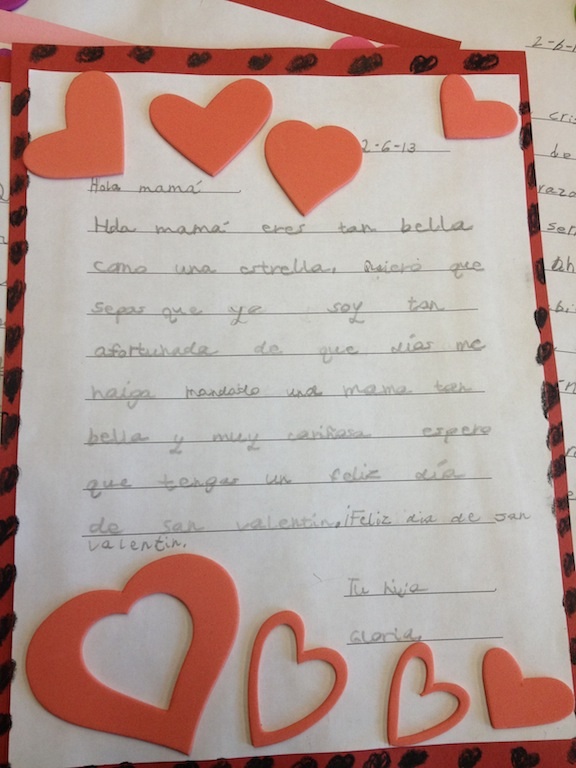 2-6-13
Hola mamá
Hola mamá eres tan bella
como una estrella, quiero que
sepas que yo soy tan
afortunada de que días me
haiga mandado una mama tan
bella y muy cariñosa espero
que tengas un feliz día
de san valentin, ¡Feliz dia de san
valentin.
Tu hija
Gloria
2-6-1
cris
de
raza
ser